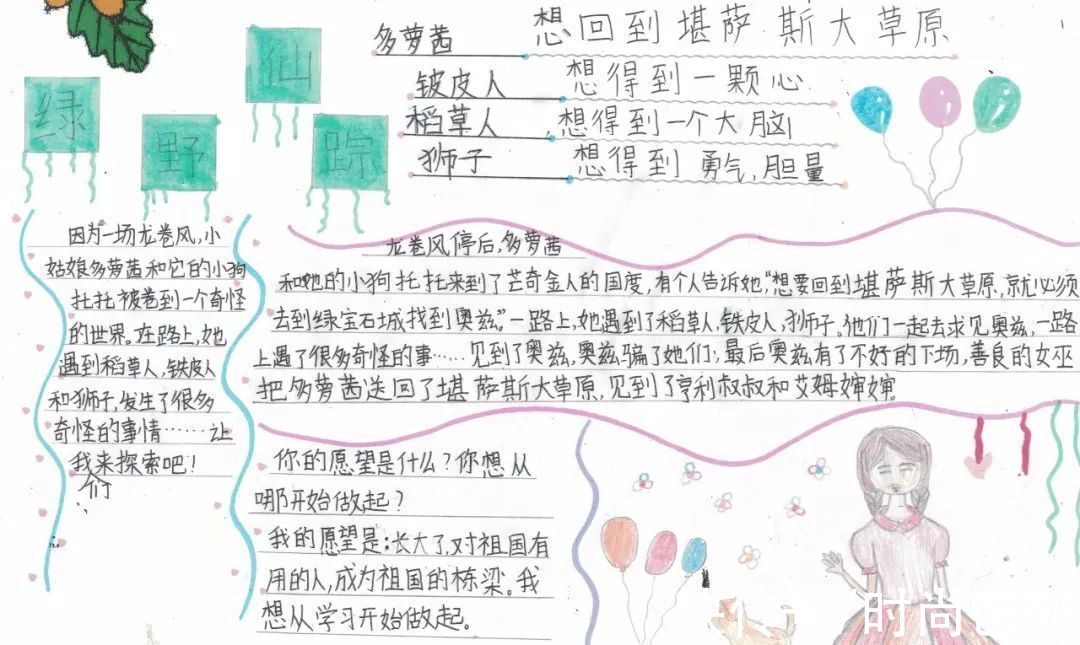 绿野仙踪
多萝茜 想回到堪萨斯大草原
铍皮人 想得到一颗心
稻草人,想得到一个大脑
狮子 想得到勇气,胆量
因为一场龙卷风,小
姑娘多萝茜和它的小狗
托托被卷到一个奇怪
的世界。在路上,她
遇到稻草人,铁皮人
和狮子,发生了很多
奇怪的事情……让
我们来探索吧!
龙卷风停后,多萝茜
和她的小狗托托来到了芒奇金人的国度,有个人告诉她,“想要回到堪萨斯大草原,就必须
去到绿宝石城找到奥兹。”一路上,她遇到了稻草人,铁皮人,狮子。他们一起去求见奥兹,一路
上遇了很多奇怪的事……见到了奥兹,奥兹骗了她们,最后奥兹有了不好的下场,善良的女巫
把多萝茜送回了堪萨斯大草原,见到了亨利叔叔和艾姆婶婶。
你的愿望是什么?你想从
哪开始做起?
我的愿望是:长大了,对祖国有
用的人,成为祖国的栋梁。我
想从学习开始做起。
时尚